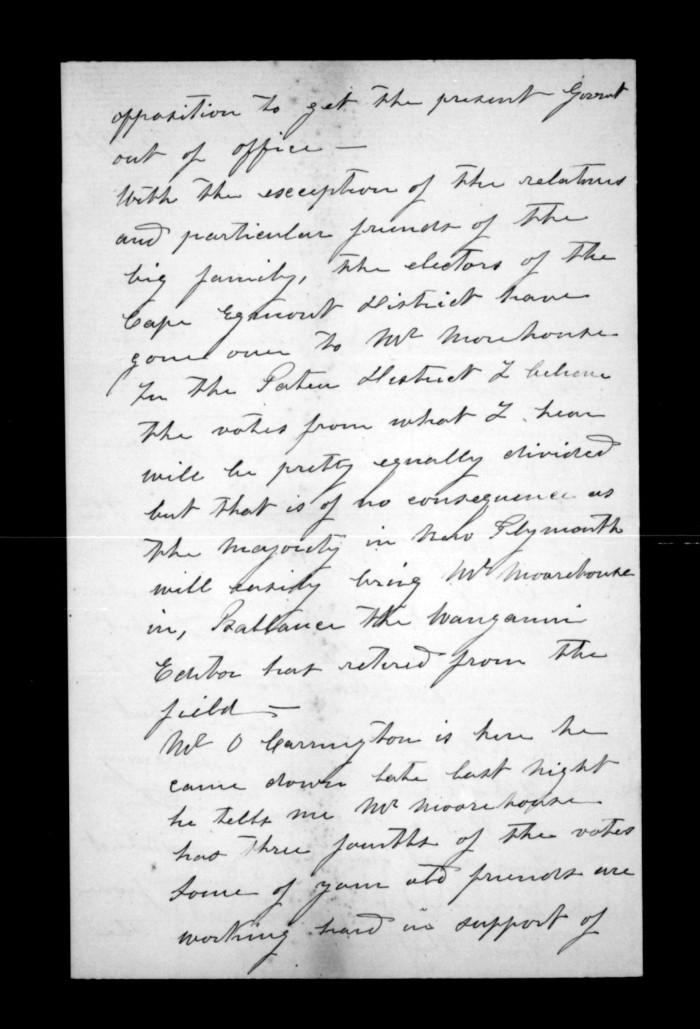 opposition to get the present Govrnt
out of office —
With the exception of the relations
and particular friends of the
big family, the electors of the
Cape Egmont District have
gone over to Mr Moorhouse
In the Patea District I believe
the votes from what I hear
will be pretty equally divided
but that is of no consequence as
the majority in New Plymouth
will easily bring Mr Moorehouse
in, Ballance the Wanganui
Editor has retired from the
field —
Mr O Carrington is here he
came down late last night
he tells me Mr Moorehouse
has three fourths of the votes
Some of your old friends are
working hard in support of